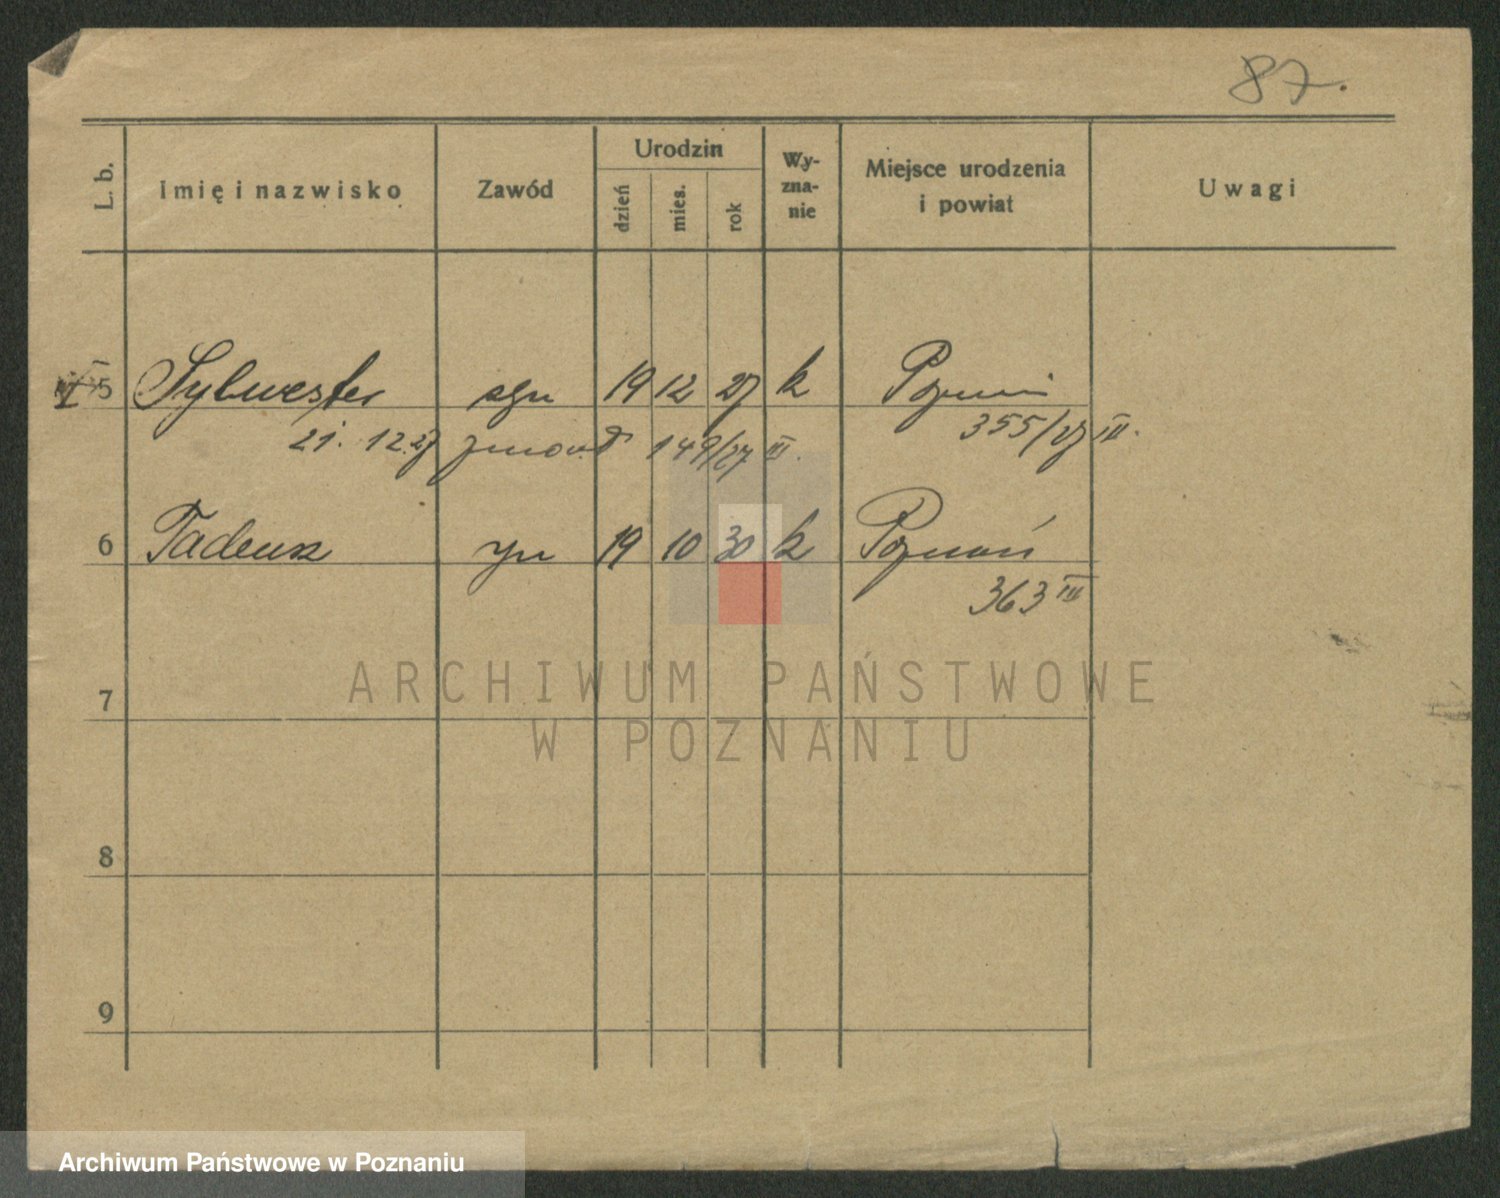 87.
L. b.
Imię i nazwisko
Zawód
Urodzin
dzień
mies.
rok
Wy-
zna-
nie
Miejsce urodzenia
i powiat
Uwagi
5 Sylwester syn 19 12 27 k Poznań
21. 12.27 149/27 III. 355/27 III.
6 Tadeusz syn 19 10 30 k Poznań
363 III
ARCHIWUM PAŃSTWOWE
7
W POZNANIU
8
9
Archiwum Państwowe w Poznaniu